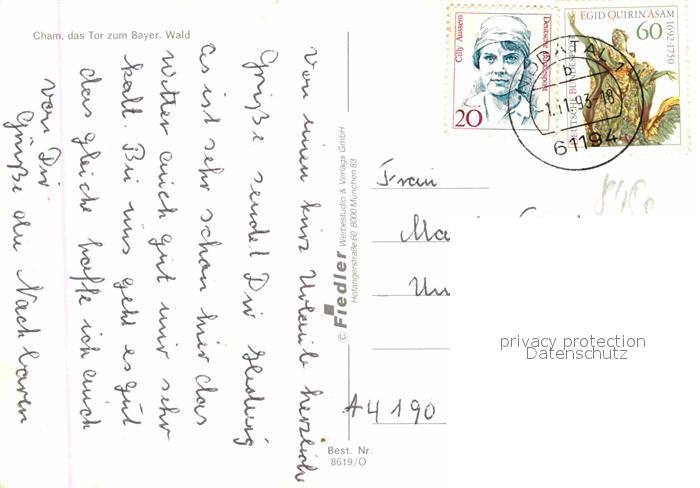 Cham, das Tor zum Bayer. Wald
von einen kurz Urlaub herzliche
Grüße sendet Dir Hedwig
es ist sehr schön hir das
Wetter auch gut nur sehr
kalt. Bei uns geht es gut
das gleiche hoffe ich auch
von Dir
Grüße die Nachbaren
© Fiedler Werbestudio & Verlags GmbH
Hofangerstraße 60 8000 München 83
Best. Nr.
8619/O
Cilly Aussem
Deutsche Bundespost
20
EGID QUIRIN ASAM
1692-1750
60
DEUTSCHE BUNDESPOST
-1.11.93-18
61194
Frau
Ma
Un
A4190
privacy protection
Datenschutz